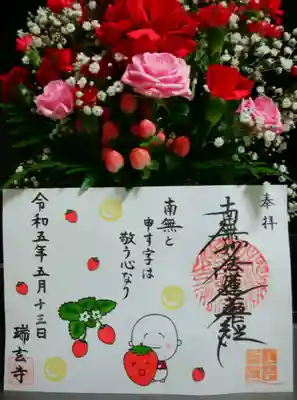 奉拝
南無妙法蓮華経
南無と
申す字は
敬う心なり
令和五年五月十三日
瑞玄寺